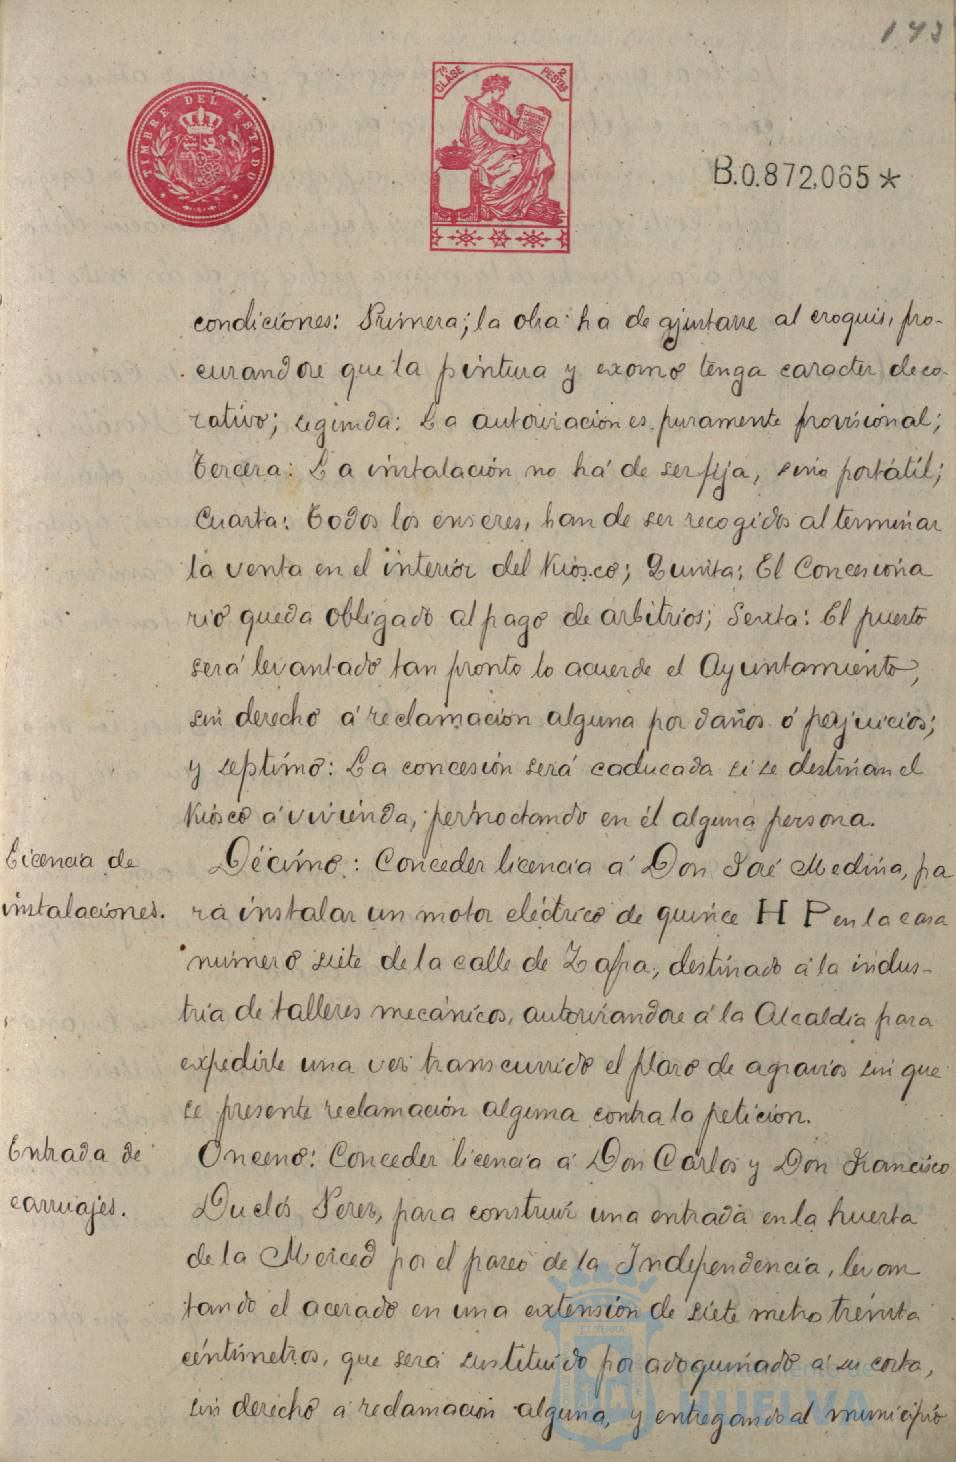 143
TIMBRE DEL ESTADO
7ª CLASE
2 PESTAS
B.0.872,065*
condiciones: Primera; la obra ha de ajustarse al croquis, pro-
curandose que la pintura y exorno tenga caracter deco-
rativo; segunda: La autorización es puramente provisional;
Tercera: La instalación no há de ser fija, sino portátil;
Cuarta: Todos los enseres, han de ser recogidos al terminar
la venta en el interior del Kiosco; Quinta: El Concesiona
rio queda obligado al pago de arbitrios; Sexta: El puesto
será levantado tan pronto lo acuerde el Ayuntamiento,
sin derecho á reclamación alguna por daños ó perjuicios;
y septimo: La concesión será caducada si se destinan el
Kiosco á vivienda, pernoctando en él alguna persona.
Licencia de
instalaciones.
Décimo: Conceder licencia á Don José Medina, pa
ra instalar un motor eléctrico de quince H P en la casa
numero siete de la calle de Zafra, destinado á la indus-
tria de talleres mecánicos, autorizandose á la Alcaldía para
expedirle una vez transcurrido el plazo de agravios sin que
se presente reclamación alguna contra la petición.
Entrada de
carruajes.
Onceno: Conceder licencia á Don Carlos y Don Francisco
Duclós Perez, para construir una entrada en la huerta
de la Merced por el paseo de la Independencia, levan
tando el acerado en una extensión de siete metro treinta
céntimetros, que será sustituido por adoquinado á su costa,
sin derecho á reclamacion alguna, y entregando al municipio
Ayuntamiento de
HUELVA